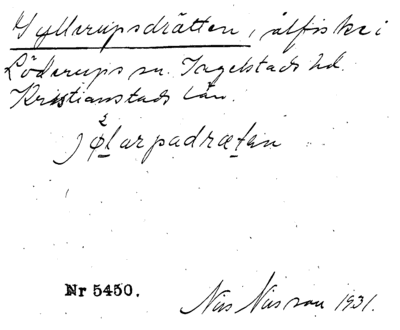 Gyllerupsdrätten, ålfiske i
Löderups sn. Ingelstads hd.
Kristianstads län.
Nr 5450.
Nils Nilsson 1931.